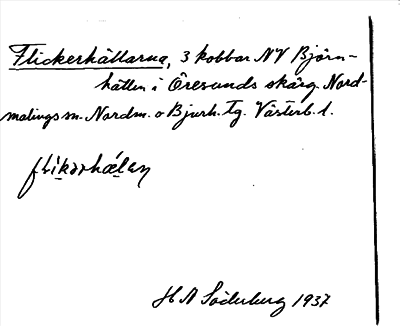 Flickerhällarna, 3 kobbar NV Björn-
hällen i Öresunds skärg. Nord-
malings sn. Nordm. o Bjurh. Tg. Västerb. l.
flìkərhǽlɐɳ
H A Söderberg 1937